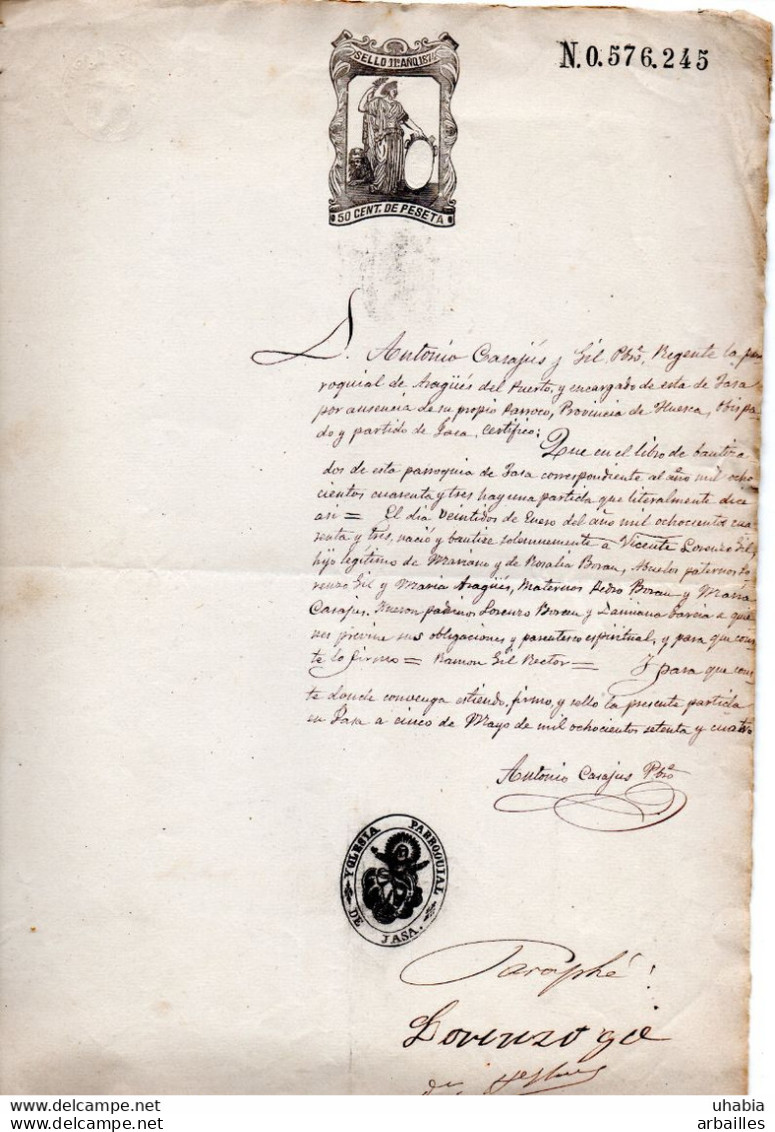 N.0.576.245
SELLO 11º AÑO 1874
50 CENT. DE PESETA
D. Antonio Casajús y Gil Pbro. Regente la par
roquial de Aragüés del Puerto, y encargado de esta de Jasa
por ausencia de su propio Parroco, Provincia de Huesca, Obispa
do y partido de Jaca, certifico:
Que en el libro de bautiza
dos de esta parroquia de Jasa correspondiente al año mil ocho
cientos cuarenta y tres hay una partida que literalmente dice
asi = El dia veintidos de Enero del año mil ochocientos cua
renta y tres, nació y bautize solemnemente a Vicente Lorenzo Gil
hijo legitimo de Mariano y de Rosalia Boran, Abuelos paternos Lo
renzo Gil y Maria Aragüés, Maternos Pedro Boran y Maria
Casajus. Fueron padrinos Lorenzo Boran y Damiana Garcia a quie
nes previne sus obligaciones y parentesco espiritual, y para que cons
te lo firmo = Ramon Gil Rector = Y para que cons
te donde convenga estiendo, firmo, y sello la presente partida
en Jasa a cinco de Mayo de mil ochocientos setenta y cuatro
Antonio Casajus Pbro
YGLESIA PARROQUIAL
DE JASA.
Paraphé:
Lorenzo gil
uhabia
arbailles